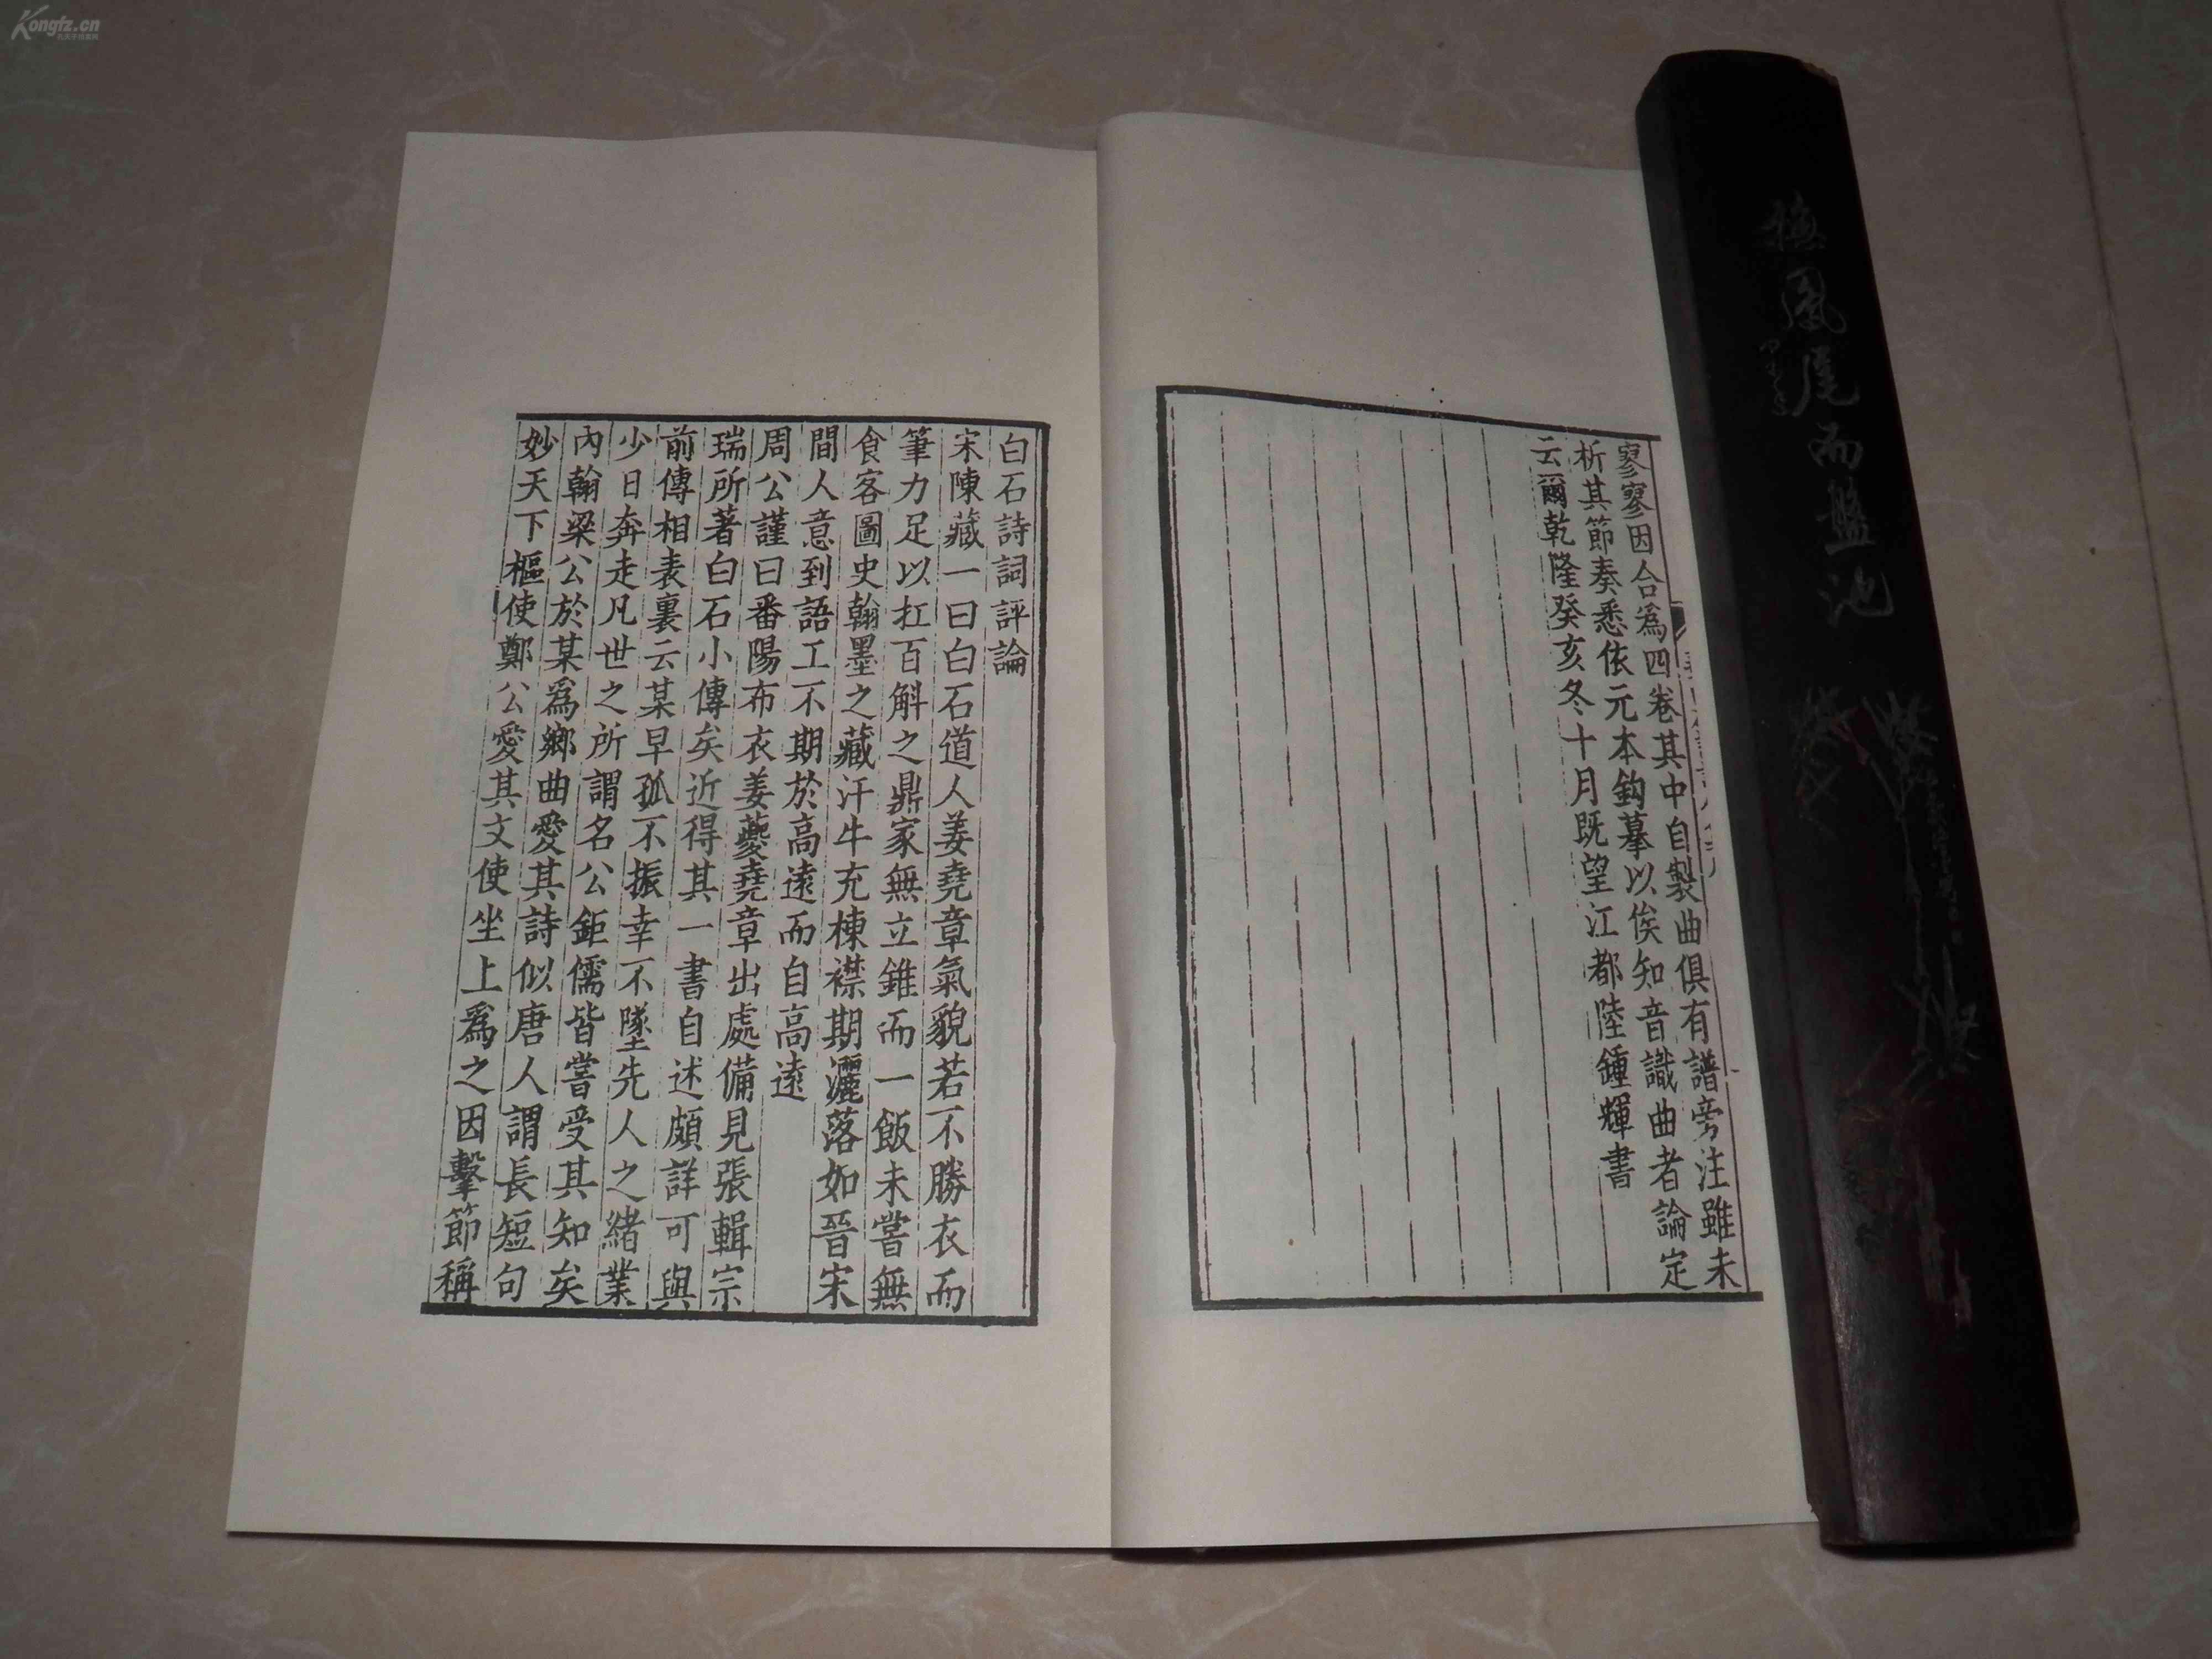 寥寥因合爲四卷其中自製曲俱有譜旁注雖未
析其節奏悉依元本鈎摹以俟知音識曲者論定
云爾乾隆癸亥冬十月既望江都陸鍾輝書
白石詩詞評論
宋陳藏一曰白石道人姜堯章氣貌若不勝衣而
筆力足以扛百斛之鼎家無立錐而一飯未嘗無
食客圖史翰墨之藏汗牛充棟襟期灑落如晉宋
間人意到語工不期於高遠而自高遠
周公謹曰番陽布衣姜夔堯章出處備見張輯宗
瑞所著白石小傳矣近得其一書自述頗詳可與
前傳相表裏云某早孤不振幸不墜先人之緒業
少日奔走凡世之所謂名公鉅儒皆嘗受其知矣
內翰梁公於某爲鄉曲愛其詩似唐人謂長短句
妙天下樞使鄭公愛其文使坐上爲之因擊節稱
鳳尾而盤池
Kongfz.cn